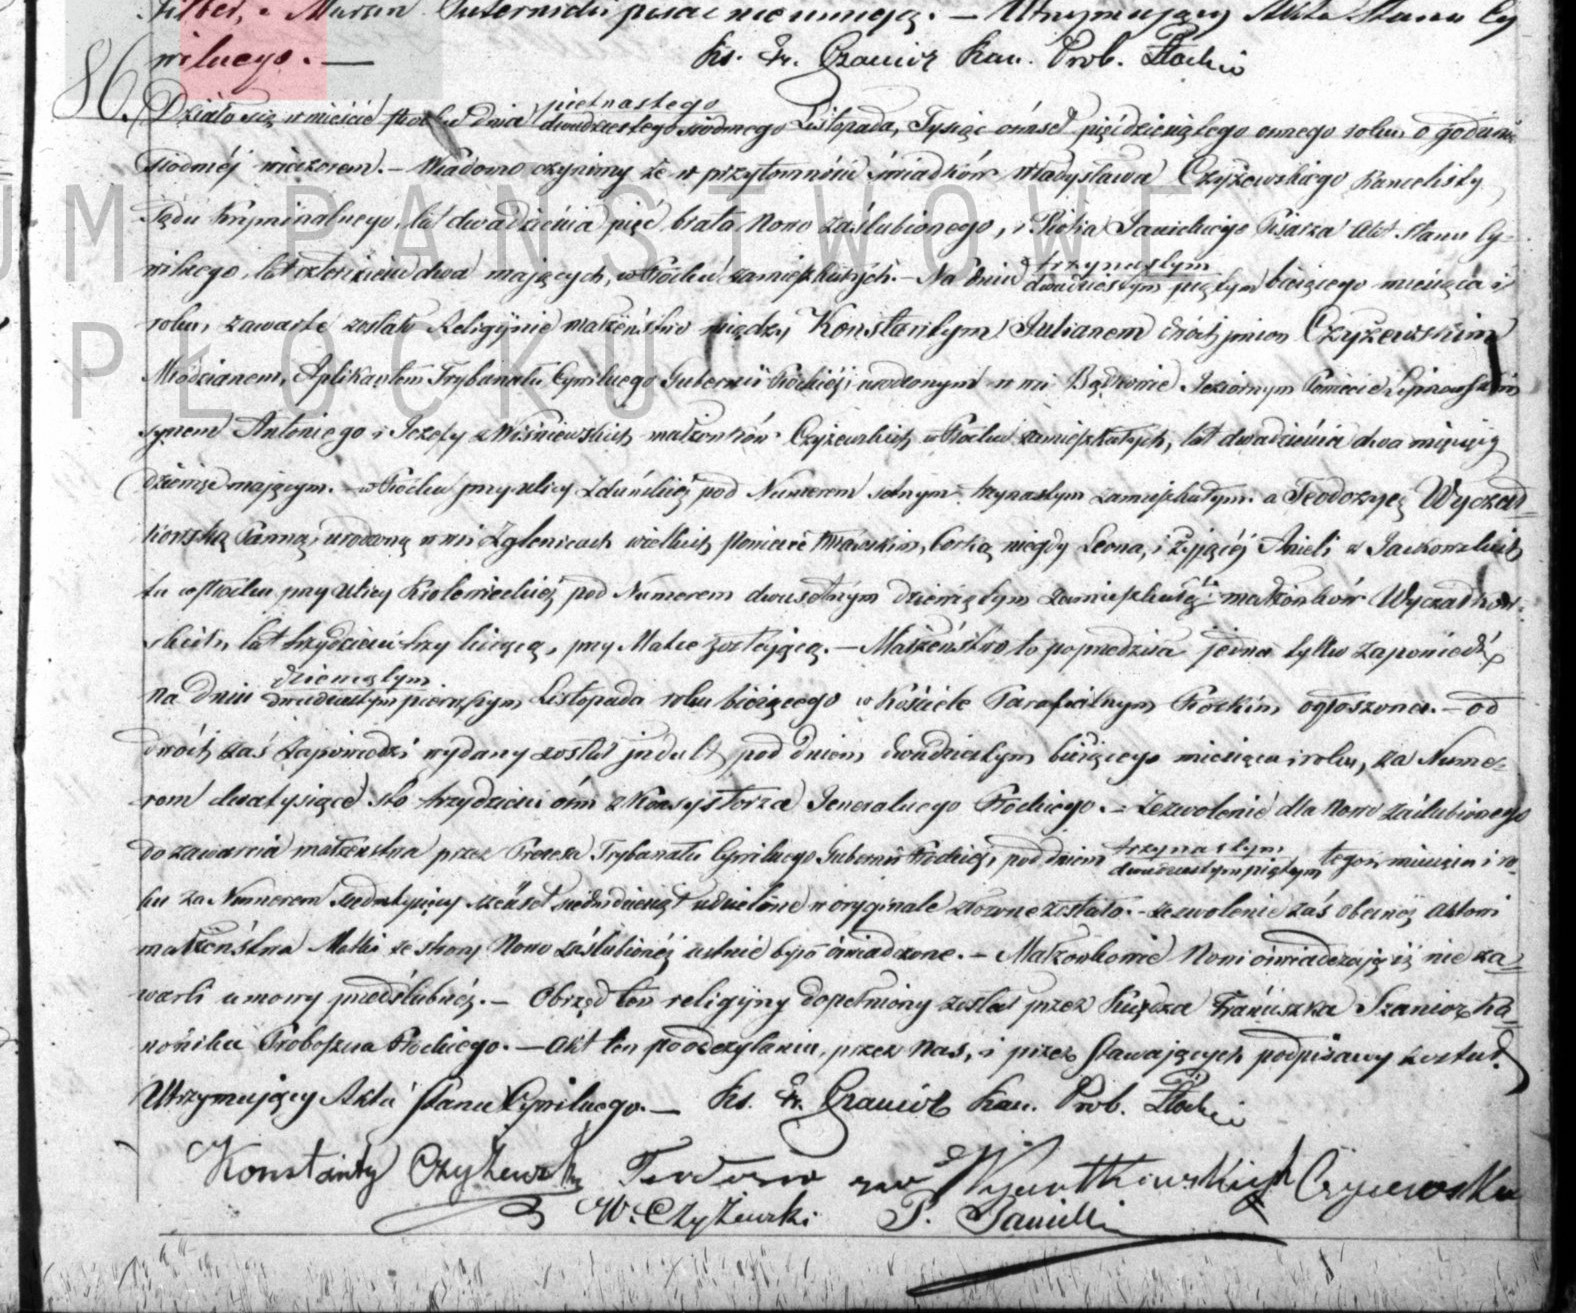 Filber, a Marcin pisać nieumieją. — Utrzymujący Akta Stanu Cy
wilnego. — Ks. Fr. Szanior Kan. Prob. Płocki
86. Działo się w mieście Płocku dnia piętnastego
dwudziestego siódmego Listopada, Tysiąc ośmset pięćdziesiątego ósmego roku, o godzinie
siódméj wieczorem. — Wiadomo czynimy że w przytomności świadków Władysława Czyżewskiego Kancelisty
Sądu Kryminalnego, lat dwadzieścia pięć brata Nowo zaślubionego, i Piotra Janickiego Pisarza Akt Stanu Cy-
wilnego, lat czterdzieści dwa mających, w Płocku zamieszkałych. — Na dniu trzynastym
dwudziestym piątym bieżącego miesiąca i
roku, zawarte zostało Religijnie małżeństwo między Konstantym Julianem dwóch imion Czyżewskim
Młodzianem, Aplikantem Trybunału Cywilnego Gubernii Płockiéj, urodzonym w wsi Jeziornym Powiecie Lipnowskim
synem Antoniego i Józefy z Wiśniewskich małżonków Czyżewskich w Płocku zamieszkałych, lat dwadzieścia dwa miesięcy
dziewięć mającym. — w Płocku przy ulicy pod Numerem setnym trzynastym zamieszkałym. a Teodozyą Wyczał-
kowską Panną, urodzoną w wsi Zglenicach wielkich Powiecie Mławskim, córką niegdy Leona, i żyjącéj Anieli z Jackowskich
tu w Płocku przy ulicy Kolonialnéj pod Numerem dwusetnym dziewiątym zamieszkałéj małżonków Wyczałkow-
skich, lat trzydzieści trzy liczącą, przy Matce zostającą. — Małżeństwo to poprzedziła jedna tylko zapowiedź
na dniu dziewiątym
dwudziestym pierwszym Listopada roku bieżącego w Kościele Parafialnym Płockim ogłoszona. — od
dwóch zaś zapowiedzi wydany został indult pod dniem dwudziestym bieżącego miesiąca i roku, za Nume-
rem dwa tysiące sto trzydzieści ośm z Konsystorza Jeneralnego Płockiego. — Zezwolenie dla Nowo zaślubionego
do zawarcia małżeństwa przez Prezesa Trybunału Cywilnego Gubernii Płockiéj, pod dniem trzynastym
dwudziestym piątym tegoż miesiąca i ro-
ku za Numerem siedmtysięcy sześćset siedmdziesiąt udzielone w oryginale złożone zostało. — zezwolenie zaś obecnéj aktowi
małżeństwa Matki ze strony Nowo zaślubionéj ustnie było oświadczone. — Małżonkowie Nowi oświadczają iż nie za-
warli umowy przedślubnéj. — Obrzęd ten religijny dopełniony został przez Księdza Franciszka Szanior Ka-
nonika Proboszcza Płockiego. — Akt ten po odczytaniu, przez Nas, i przez Stawających podpisany został.
Utrzymujący Akta Stanu Cywilnego. — Ks. Fr. Szanior Kan. Prob. Płocki
Konstanty Czyżewski Teodozia Wyczałkowska Czyżewska
W. Czyżewski P. Janicki
UM PAŃSTWOWE
PŁOCKU